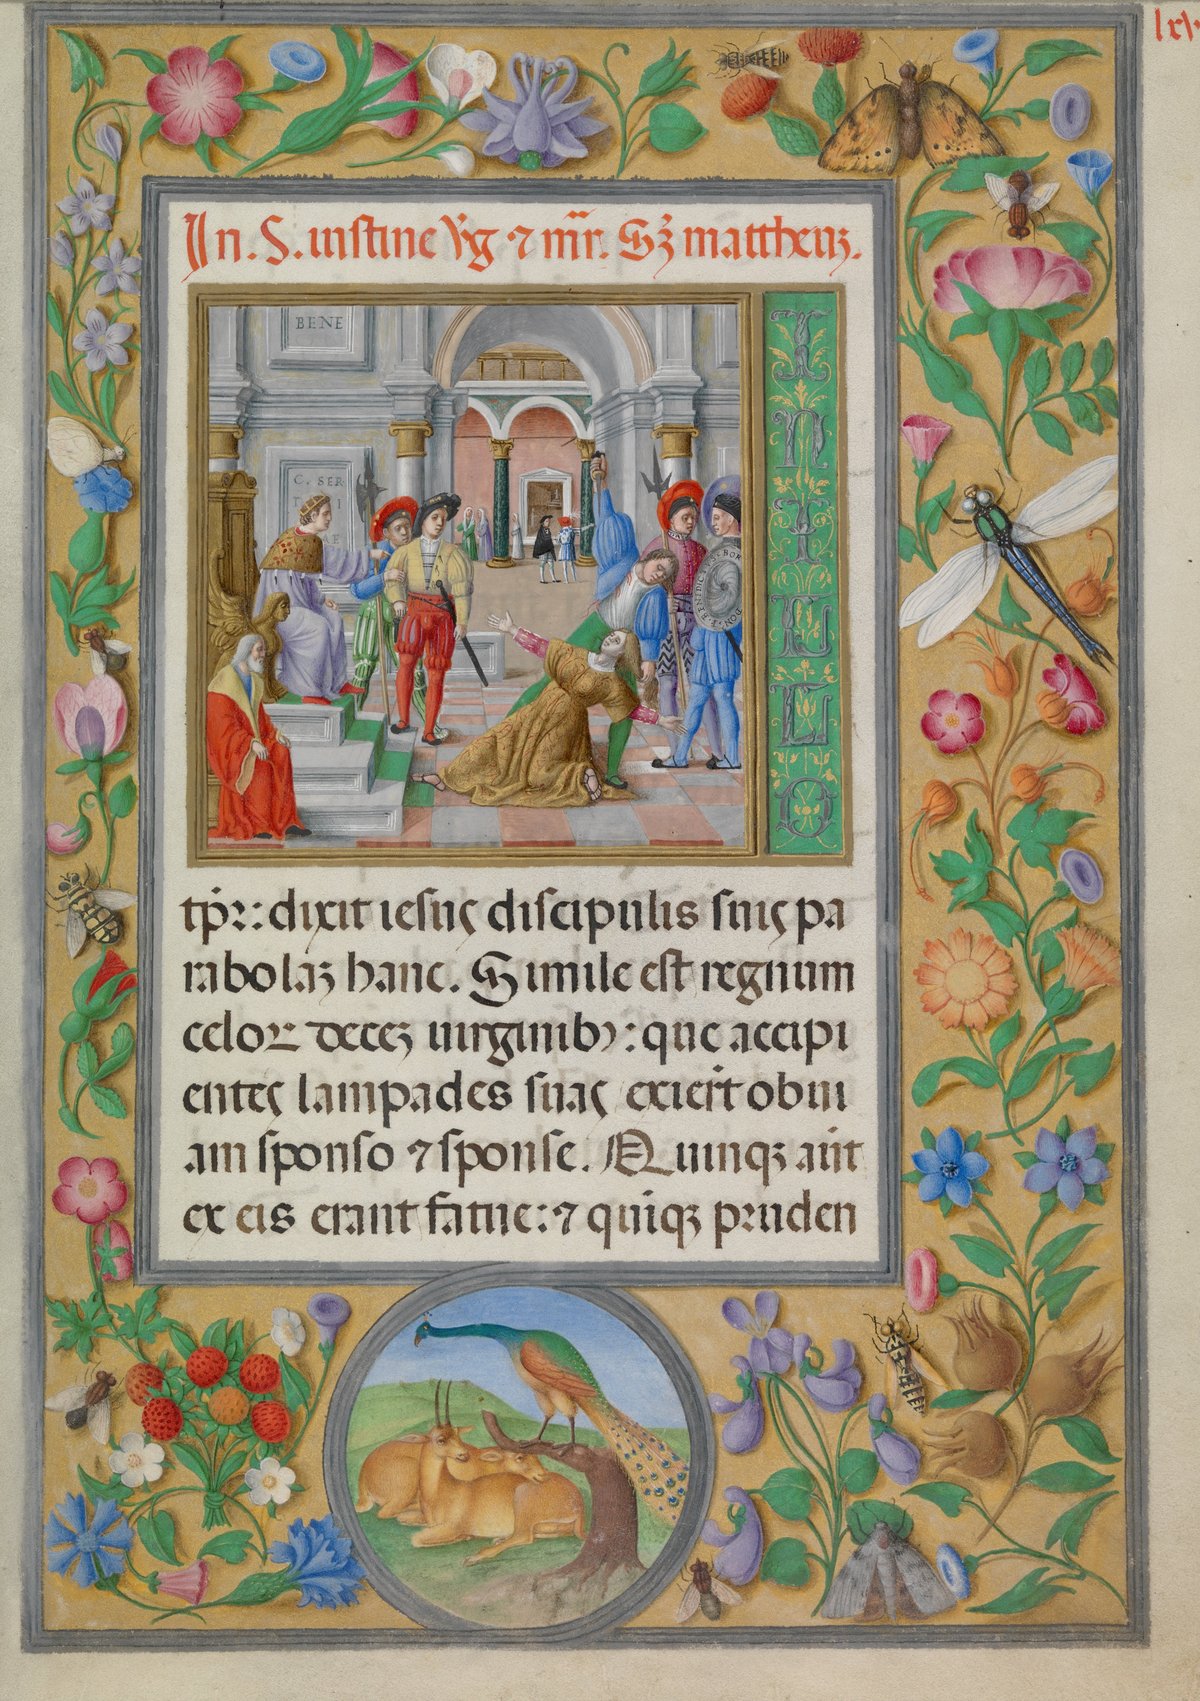 lxv
In. S. iustine Vg ⁊ mr̄. Scȝ mattheuȝ.
BENE
C. SER
I N I L L O
tp̄r: dixit iesus discipulis suis pa
rabolaȝ hanc. Simile est regnum
celoꝝ decеȝ uirginibꝰ: que accipi
entes lampades suas exiert̄ obui
am sponso ⁊ sponse. Quinqȝ aūt
ex eis erant fatue: ⁊ quīqȝ pruden